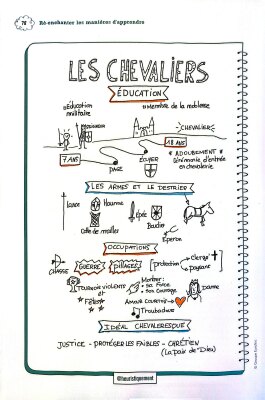 78
Ré-enchanter les manières d'apprendre
LES CHEVALIERS
ÉDUCATION
Éducation militaire
Membre de la noblesse
CHEVALIER
18 ANS
7 ANS
PAGE
ÉCUYER
"ADOUBEMENT"
Cérémonie d'entrée
en chevalerie
LES ARMES ET LE DESTRIER
Lance
Heaume
Épée
Cotte de mailles
Bouclier
Éperon
OCCUPATIONS
CHASSE
GUERRE
PILLAGES
protection
clergé
paysans
TOURNOIS violents
et
Fêtes
Montrer:
• sa Force
• son Courage
Dame
AMOUR COURTOIS
Troubadour
IDÉAL CHEVALERESQUE
JUSTICE - PROTÉGER LES FAIBLES - CHRÉTIEN
(La paix de Dieu)
@heuristiquement